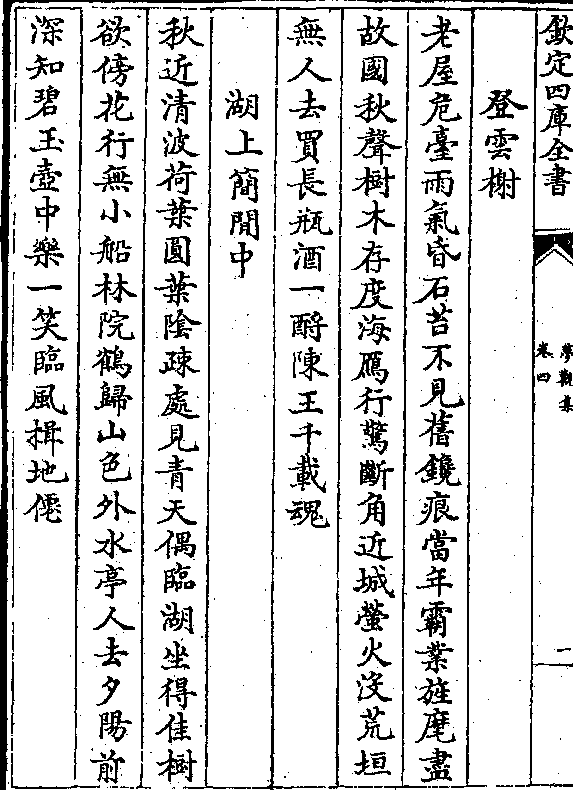 欽定四庫全書
夢觀集
卷四
二
登雲榭
老屋危臺雨氣昏石苔不見舊鑱痕當年霸業旌麾盡
故國秋聲樹木存度海鴈行驚斷角近城螢火沒荒垣
無人去買長瓶酒一酹陳王千載魂
湖上簡閒中
秋近清波荷葉圓葉陰疎處見青天偶臨湖坐得佳樹
欲傍花行無小船林院鶴歸山色外水亭人去夕陽前
深知碧玉壺中樂一笑臨風揖地僊